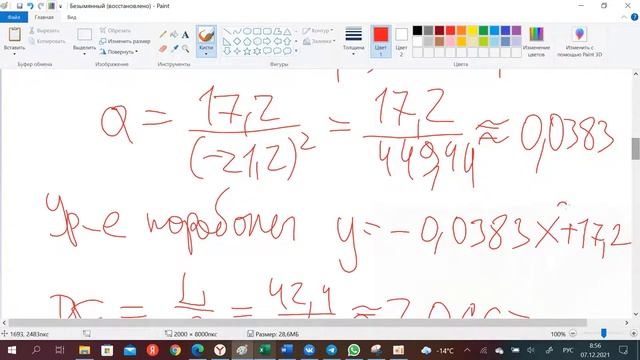 Безымянный (восстановлено) - Paint
Файл Главная Вид
Вставить Вырезать Копировать Выделить Обрезать Изменить размер Повернуть Кисти Контур Заливка Толщина Цвет 1 Цвет 2 Изменение цветов Изменить с помощью Paint 3D
Буфер обмена Изображение Инструменты Фигуры Цвета
a = 17,2 / (-21,2)² = 17,2 / 449,44 ≈ 0,0383
Ур-е параболы y = -0,0383x²+17,2
= L = 42,4 ≈
1693, 2483пкс 2000 × 8000пкс Размер: 28,6МБ 100%
-14°C РУС 8:56
07.12.2021